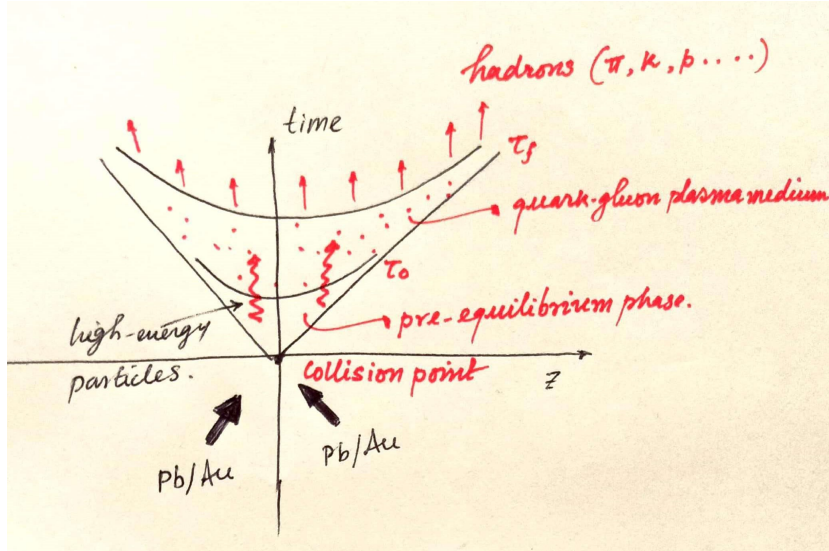 hadrons (π, K, p....)
time
τf
quark-gluon plasma medium
τo
pre-equilibrium phase.
high-energy
particles.
Collision point
z
Pb/Au
Pb/Au